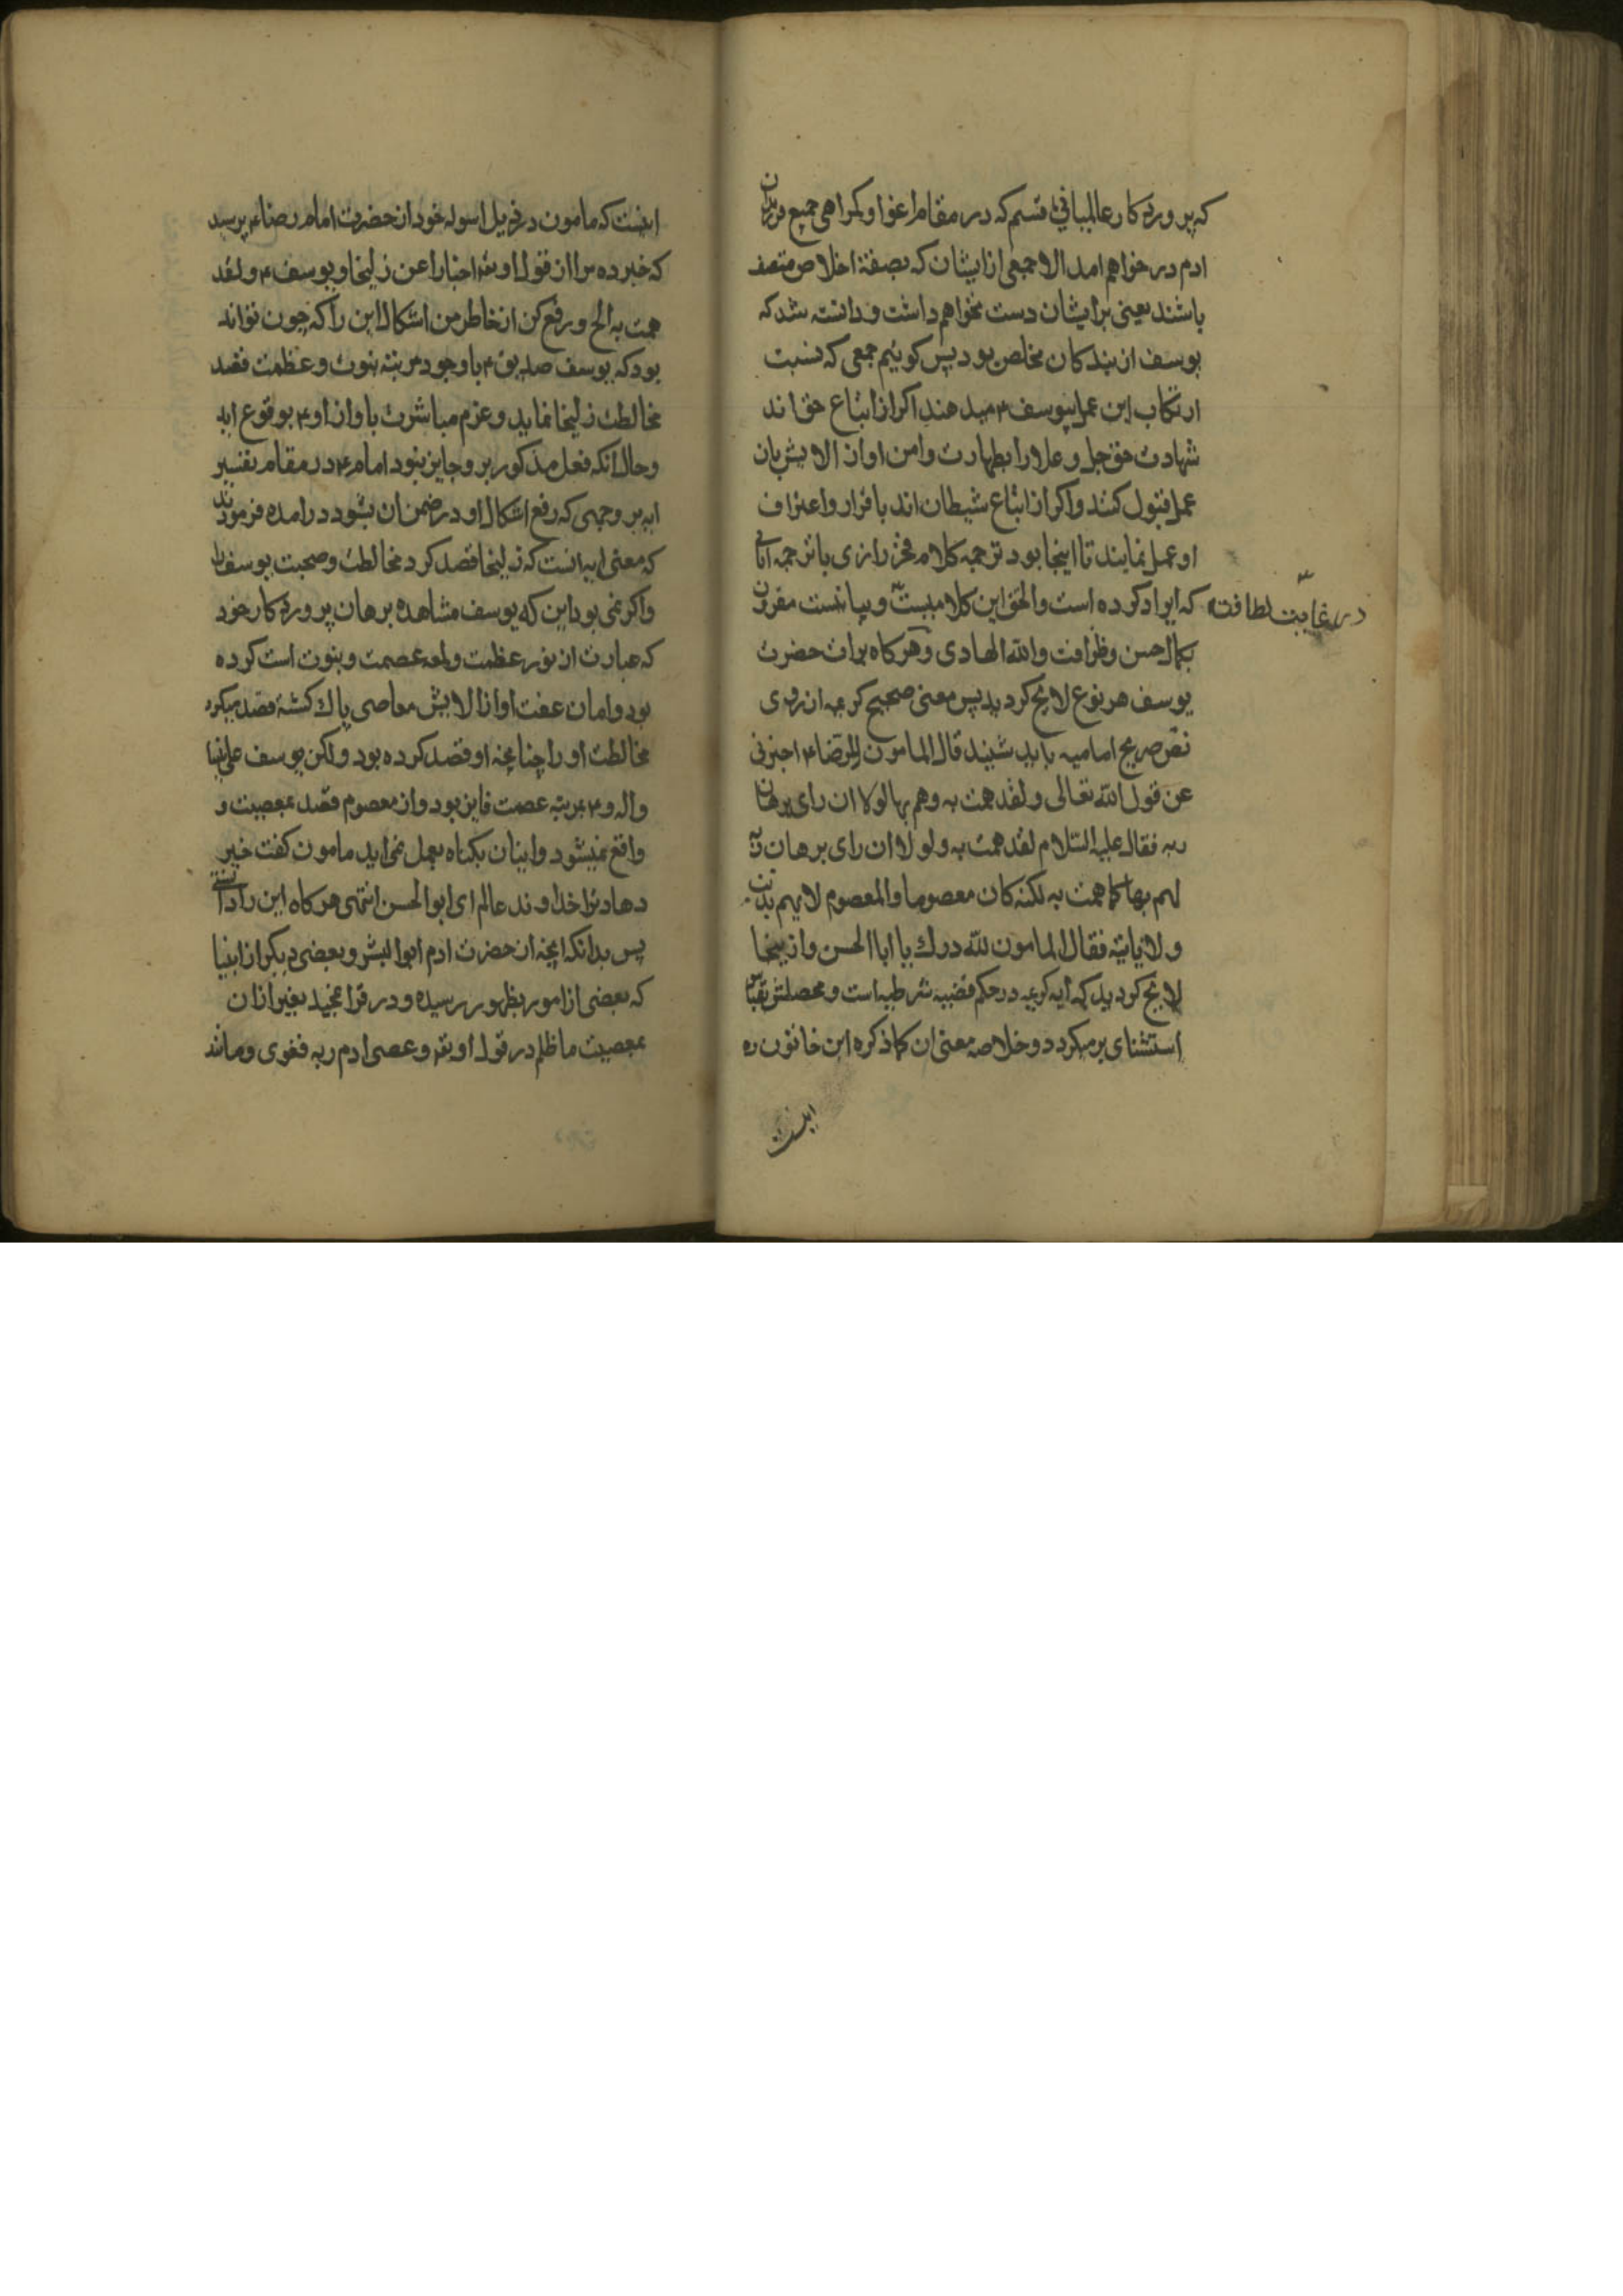 که پروردکار عالمیانی قسم که در مقام اغوا و کمراهی جمیع فرزندان
ادم در خواهم امد الا جمعی از ایشان که بصفة اخلاص متصف
باشند یعنی بر ایشان دست نخواهم داشت و دانسته شد که
یوسف از بندکان مخلص بود پس کوئیم جمعی که نسبت
ارتکاب این عمل بیوسف ۴ میدهند اکر از اتباع حق اند
شهادت حق جل و علا را بطهارت دامن او از الایش بان
عمل قبول کنند و اکر از اتباع شیطان اند باقرار و اعتراف
او عمل نمایند تا اینجا بود ترجمه کلام فخر رازی با ترجمه
که ایراد کرده است والحق این کلامیست و بیانیست مقرون
در غایت لطافت
بکمال حسن و ظرافت والله الهادی و هرکاه برات حضرت
یوسف هر نوع لایح کردید پس معنی صحیح کریمه از روی
نص صریح امامیه باید شنید قال المامون للرضا ۴ اخبرنی
عن قول الله تعالی و لقد همت به وهم بها لولا ان رای برهان
ربه فقال علیه السلام لقد همت به و لولا ان رای برهان ربه
لهم بها کما همت به لکنه کان معصوما والمعصوم لا یهم بذنب
ولا یاتیه فقال المامون لله درك یا ابا الحسن و از اینجا
لایح کردید که ایه کریمه در حکم قضیه شرطیه است و محصلش بقیاس
استثنای برمیکردد و خلاصه معنی ان کما ذکره ابن خاتون ره
اینست
اینست که مامون در ذیل اسوله خود از حضرت امام رضا ۴ پرسید
که خبر ده مرا از قول او تعه اخبارا عن زلیخا و یوسف ۴ و لقد
همت به الخ و رفع کن از خاطر من اشکال این را که چون تواند
بود که یوسف صدیق ۴ با وجود مرتبه نبوت و عظمت قصد
مخالطت زلیخا نماید و عزم مباشرت با او از او ۴ بوقوع اید
و حال انکه فعل مذکور بر وجایز نبود امام ۴ در مقام تفسیر
ایه بر وجهی که رفع اشکال او در ضمن ان بشود درامده فرمودند
که معنی ایه انست که زلیخا قصد کرد مخالطت و صحبت یوسف را
و اکر نمی بود این که یوسف مشاهده برهان پروردکار خود
که عبارت از نور عظمت و لمعه عصمت و نبوت است کرده
بود و دامان عفت او از الایش معاصی پاك کشته قصد میکرد
مخالطت او را چنانچه او قصد کرده بود ولکن یوسف علی نبینا
واله و ۴ بمرتبه عصمت فایز بود و از معصوم قصد بمعصیت و
واقع نمیشود و اتیان بکناه بعمل نمی اید مامون کفت خیر
دهاد ترا خداوند عالم ای ابوالحسن انتهی هرکاه این را دانستی
پس بدانکه انچه از حضرت ادم ابوالبشر و بعضی دیکر از انبیا
که بعضی از امور بظهور رسیده و در قران مجید تعبیر از ان
بمعصیت ما ظلم در قول او تعه و عصی ادم ربه فغوی و مانند